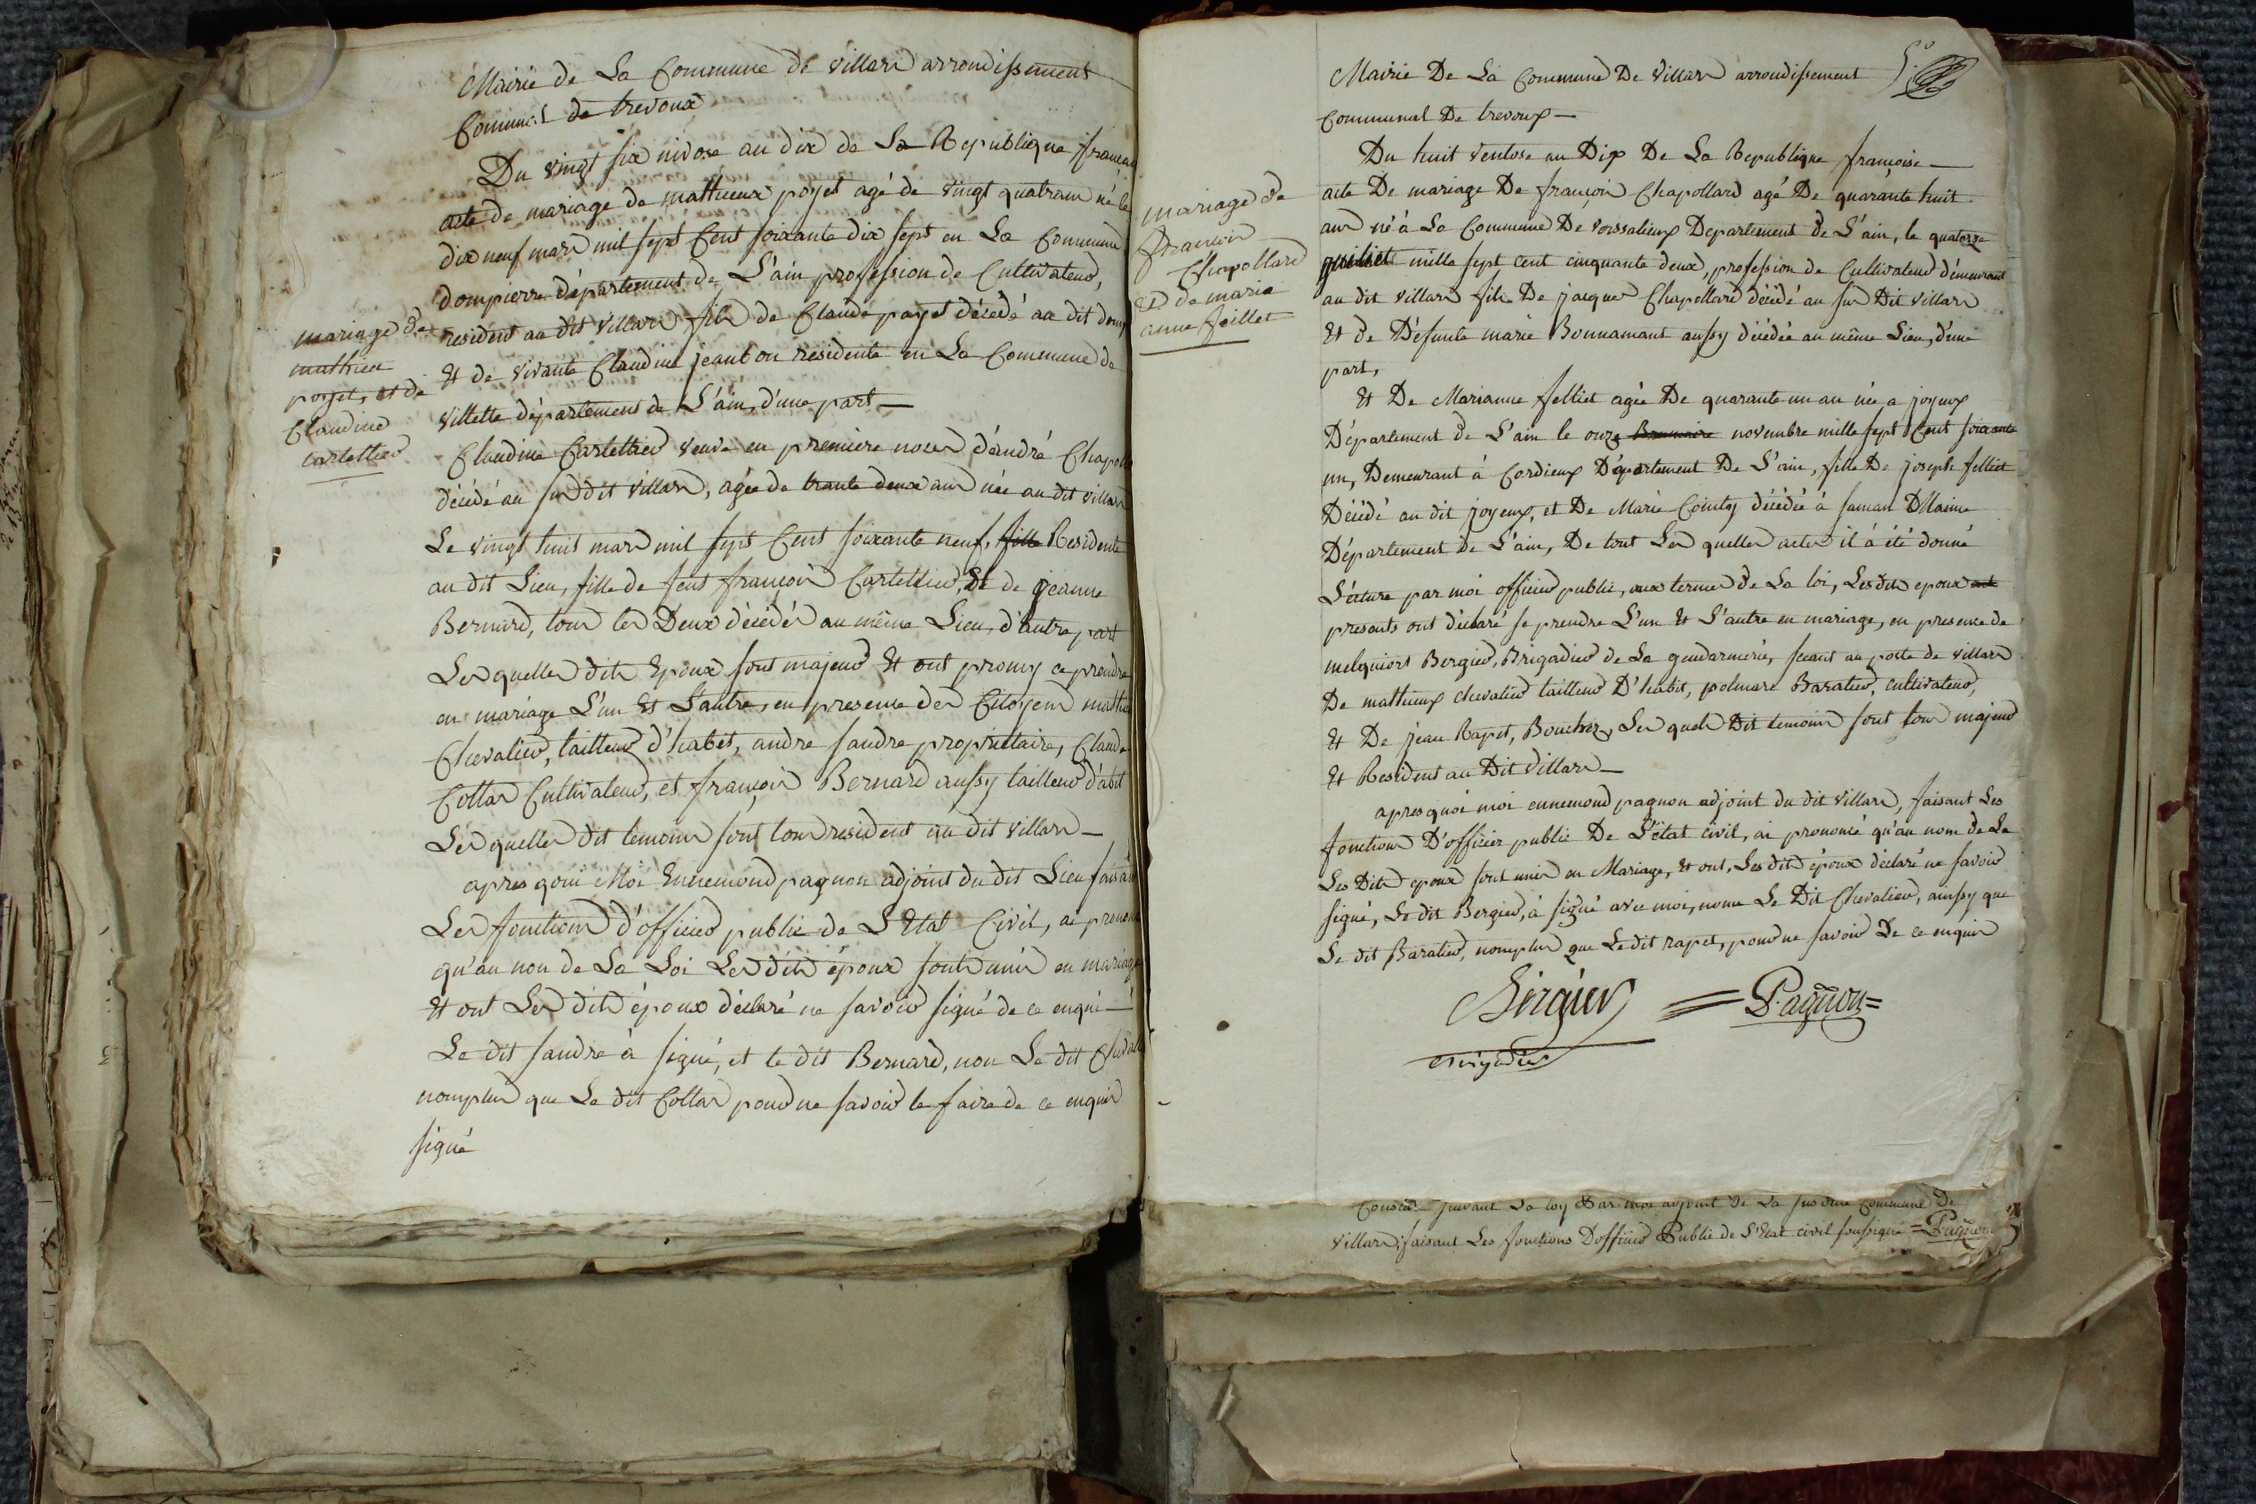 Mairie de La Commune de villars arrondissement
Communal de trevoux
Du vingt six nivose an dix de La Republique francai
acte de mariage de mathieux poyet agé de vingt quatre ans né le
dix neuf mars mil sept Cent soixante dix sept en La Commune
dompierre département de L'ain profession de Cultivateur,
resident au dit villars fils de Claude poyet décédé au dit domp
Et de vivante Claudine jeanton residente en La Commune de
villette département de L'ain, d'une part —
mariage de
mathieu
poyet, et de
Claudine
cartellier
Claudine Cartellier veuve en premiere noces d'andré Chapol
décédé au sus dit villars, agée de trante deux ans née au dit villars
Le vingt huit mars mil sept Cent soixante neuf, fille Residente
au dit Lieu, fille de feut françois Cartellier, Et de jeanne
Bernard, tous les Deux décédés au même Lieu, d'autre part
Les quelles dits Epoux sont majeurs Et ont promy ce prendre
en mariage L'un Et L'autre, en presence des Citoyens mathie
Chevalier, tailleur d'habet, andre sandre propriétaire, Claude
Cottar Cultivateur, et françois Bernard aussy tailleur d'abit
Les quelles dit temoins sont tous resident au dit villars —
apres quoi Moi Ennemond pagnon adjoint du dit Lieu faisant
Les fonctions d'officier public de L'Etat Civil, ai prenon
qu'au non de La Loi Les dits époux sont unis en mariage
Et ont Les dits époux déclaré ne savoir signé de ce enqui —
Le dit sandre à signé, et le dit Bernard, non Le dit Cheval
nomplus que Le dit Cottar pour ne savoir le faire de ce enquis
signé
5.e
Mairie De La Commune De Villars arrondissement
Communal De trevoux —
Du huit ventose an Dix De La Republique françoise —
acte De mariage De françois Chapollard agé De quarante huit
ans né à La Commune De voissalieux Departement de L'ain, le quatorze
juilliet mille sept cent cinquante deux, profession de Cultivateur démeurant
au dit villars fils De jacques Chapollard décédé au sus Dit villars
Et de Défunte marie Bonnamant aussy décédée au même Lieu, d'une
part,
mariage de
françois
Chapollard
Et de marie
anne feillet
Et De Marianne felliet agée De quarante un an née a joyeux
Département de L'ain le onze Brumaire novembre mille sept Cent soixante
un, Demeurant à Cordieux Département De L'ain, fille De joseph felliet
Décédé au dit joyeux, et De Marie Cointy décédée à saman
Département de L'ain, De tout Les quelles actes il à été donné
L'écture par moi officier public, aux termes de La loi, Les dits epoux
presants ont déclaré se prendre L'un Et L'autre en mariage, en presence de
melquiors Bergier, Brigadier de La gendarmerie, seant au poste de villars
De mathieux chevalier tailleur D'habit, polmare Baratier, cultivateur,
Et De jean Rapet, Boucher, Les quels Dit temoins sont tous majeurs
Et Resident au Dit villars —
apres quoi moi ennemond pagnon adjoint du dit villars, faisant Les
fonctions D'officier public De L'état civil, ai prononcé qu'au nom de La
Les Dits epoux sont unis en Mariage, Et ont, Les dits époux déclaré ne savoir
signé, Le dit Bergier, à signé avec moi, nonn Le Dit Chevalier, aussy que
Le dit Baratier, nomplus que Le dit rapet, pour ne savoir De ce enquis
Bergier = Pagnon =
Brigadier
Constaté suivant La loy Par moi adjoint de La susditte commune De
villars, faisant Les fonctions D'officier Public de L'Etat civil soussigné = Pagnon